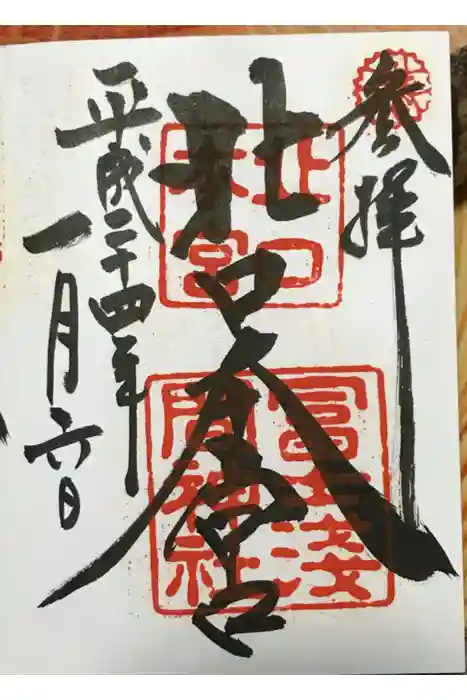 参拝
北口本宮
平成二十四年
一月六日
北口
本宮
冨士淺
間神社